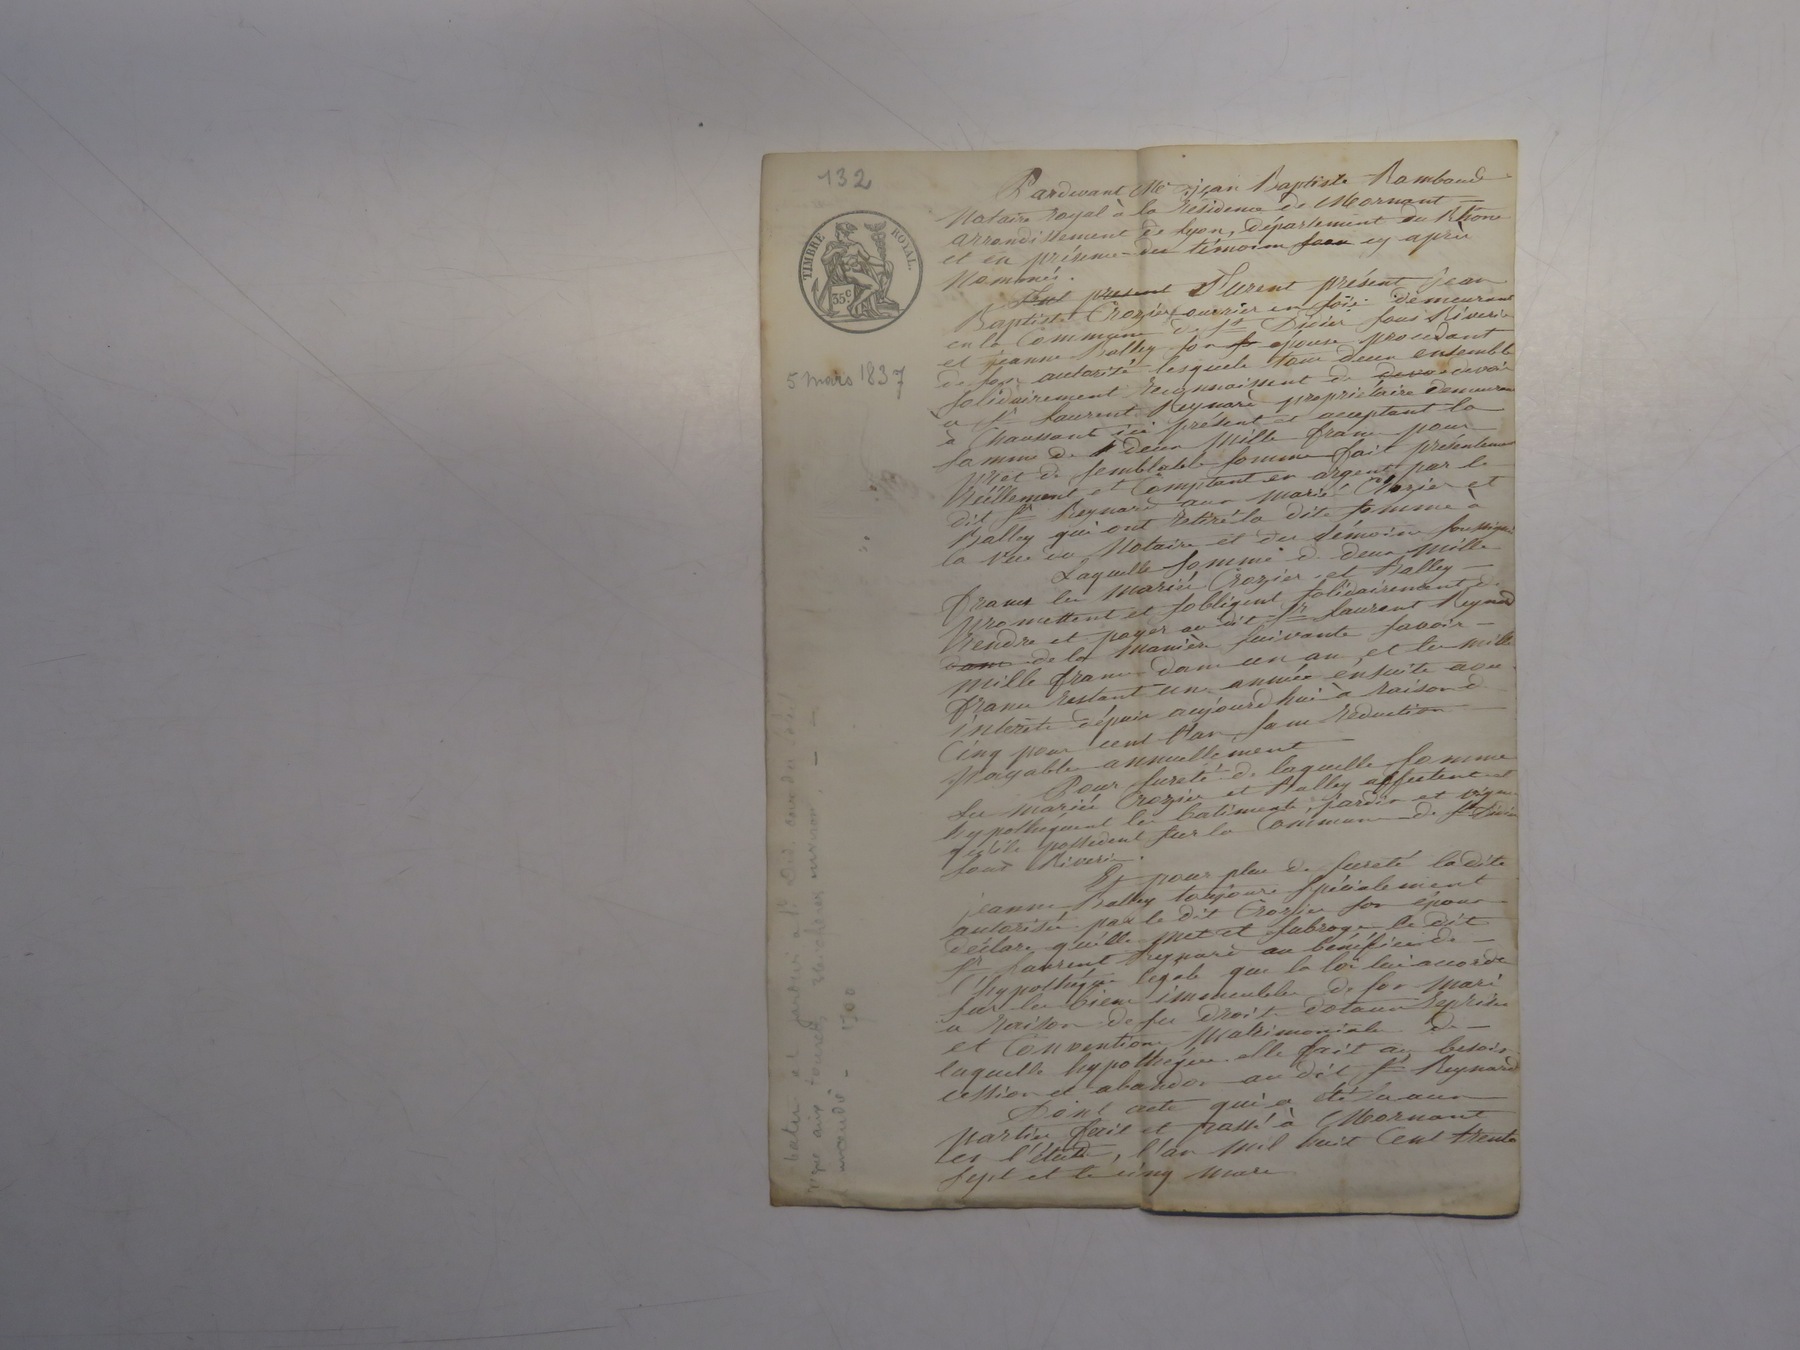 132
TIMBRE ROYAL.
35 c
5 mars 1837
Pardevant Me jean Baptiste Rambaud
Notaire royal à la résidence de Mornant
arrondissement de Lyon, département du Rhône
et en présence des témoins cy après
Nommés.
furent présent jean
Baptiste Crozier ouvrier en soie demeurant
en la Commune de St Didier sous Riverie
et jeanne Balley son épouse procédant
de son autorité lesquels tous deux ensemble
solidairement reconnaissent devoir
a Sr Laurent Reynard propriétaire demeurant
à Chaussant ici présent et acceptant la
somme de deux Mille francs pour
prêt de semblable somme fait présentement
réellement et Comptant en argent par le
dit Sr Reynard aux mariés Crozier et
Balley qui ont retiré la dite somme à
la vue du Notaire et des témoins soussignés
Laquelle somme de deux Mille
francs les mariés Crozier et Balley
promettent et sobligent solidairement de
rendre et payer au dit Sr Laurent Reynard
de la manière suivante savoir
Mille francs dans un an, et les mille
francs restant une année ensuite avec
intérêts dépuis aujourd'hui à raison de
Cinq pour cent l'an sans réduction
payables annuellement
Pour sureté de laquelle somme
les mariés Crozier et Balley affectent et
hypothéquent les batiments, jardin et vigne
qu'ils possèdent sur la Commune de St Didier
sous Riverie.
Et pour plus de sureté la dite
jeanne Balley toujours spécialement
autorisée par le dit Crozier son époux
déclare qu'elle met et subroge le dit
Sr Laurent Reynard au bénéfice de
l'hypothéque legale que la loi lui accorde
sur les biens immeubles de son mari
a raison de ses droits dotaux reprises
et Conventions Matrimoniales de
laquelle hypothéque elle fait au besoin
cession et abandon au dit Sr Reynard
Dont acte qui a été lu aux
parties fait et passé à Mornant
en l'étude, l'an mil huit Cent trente
sept et le cinq Mars